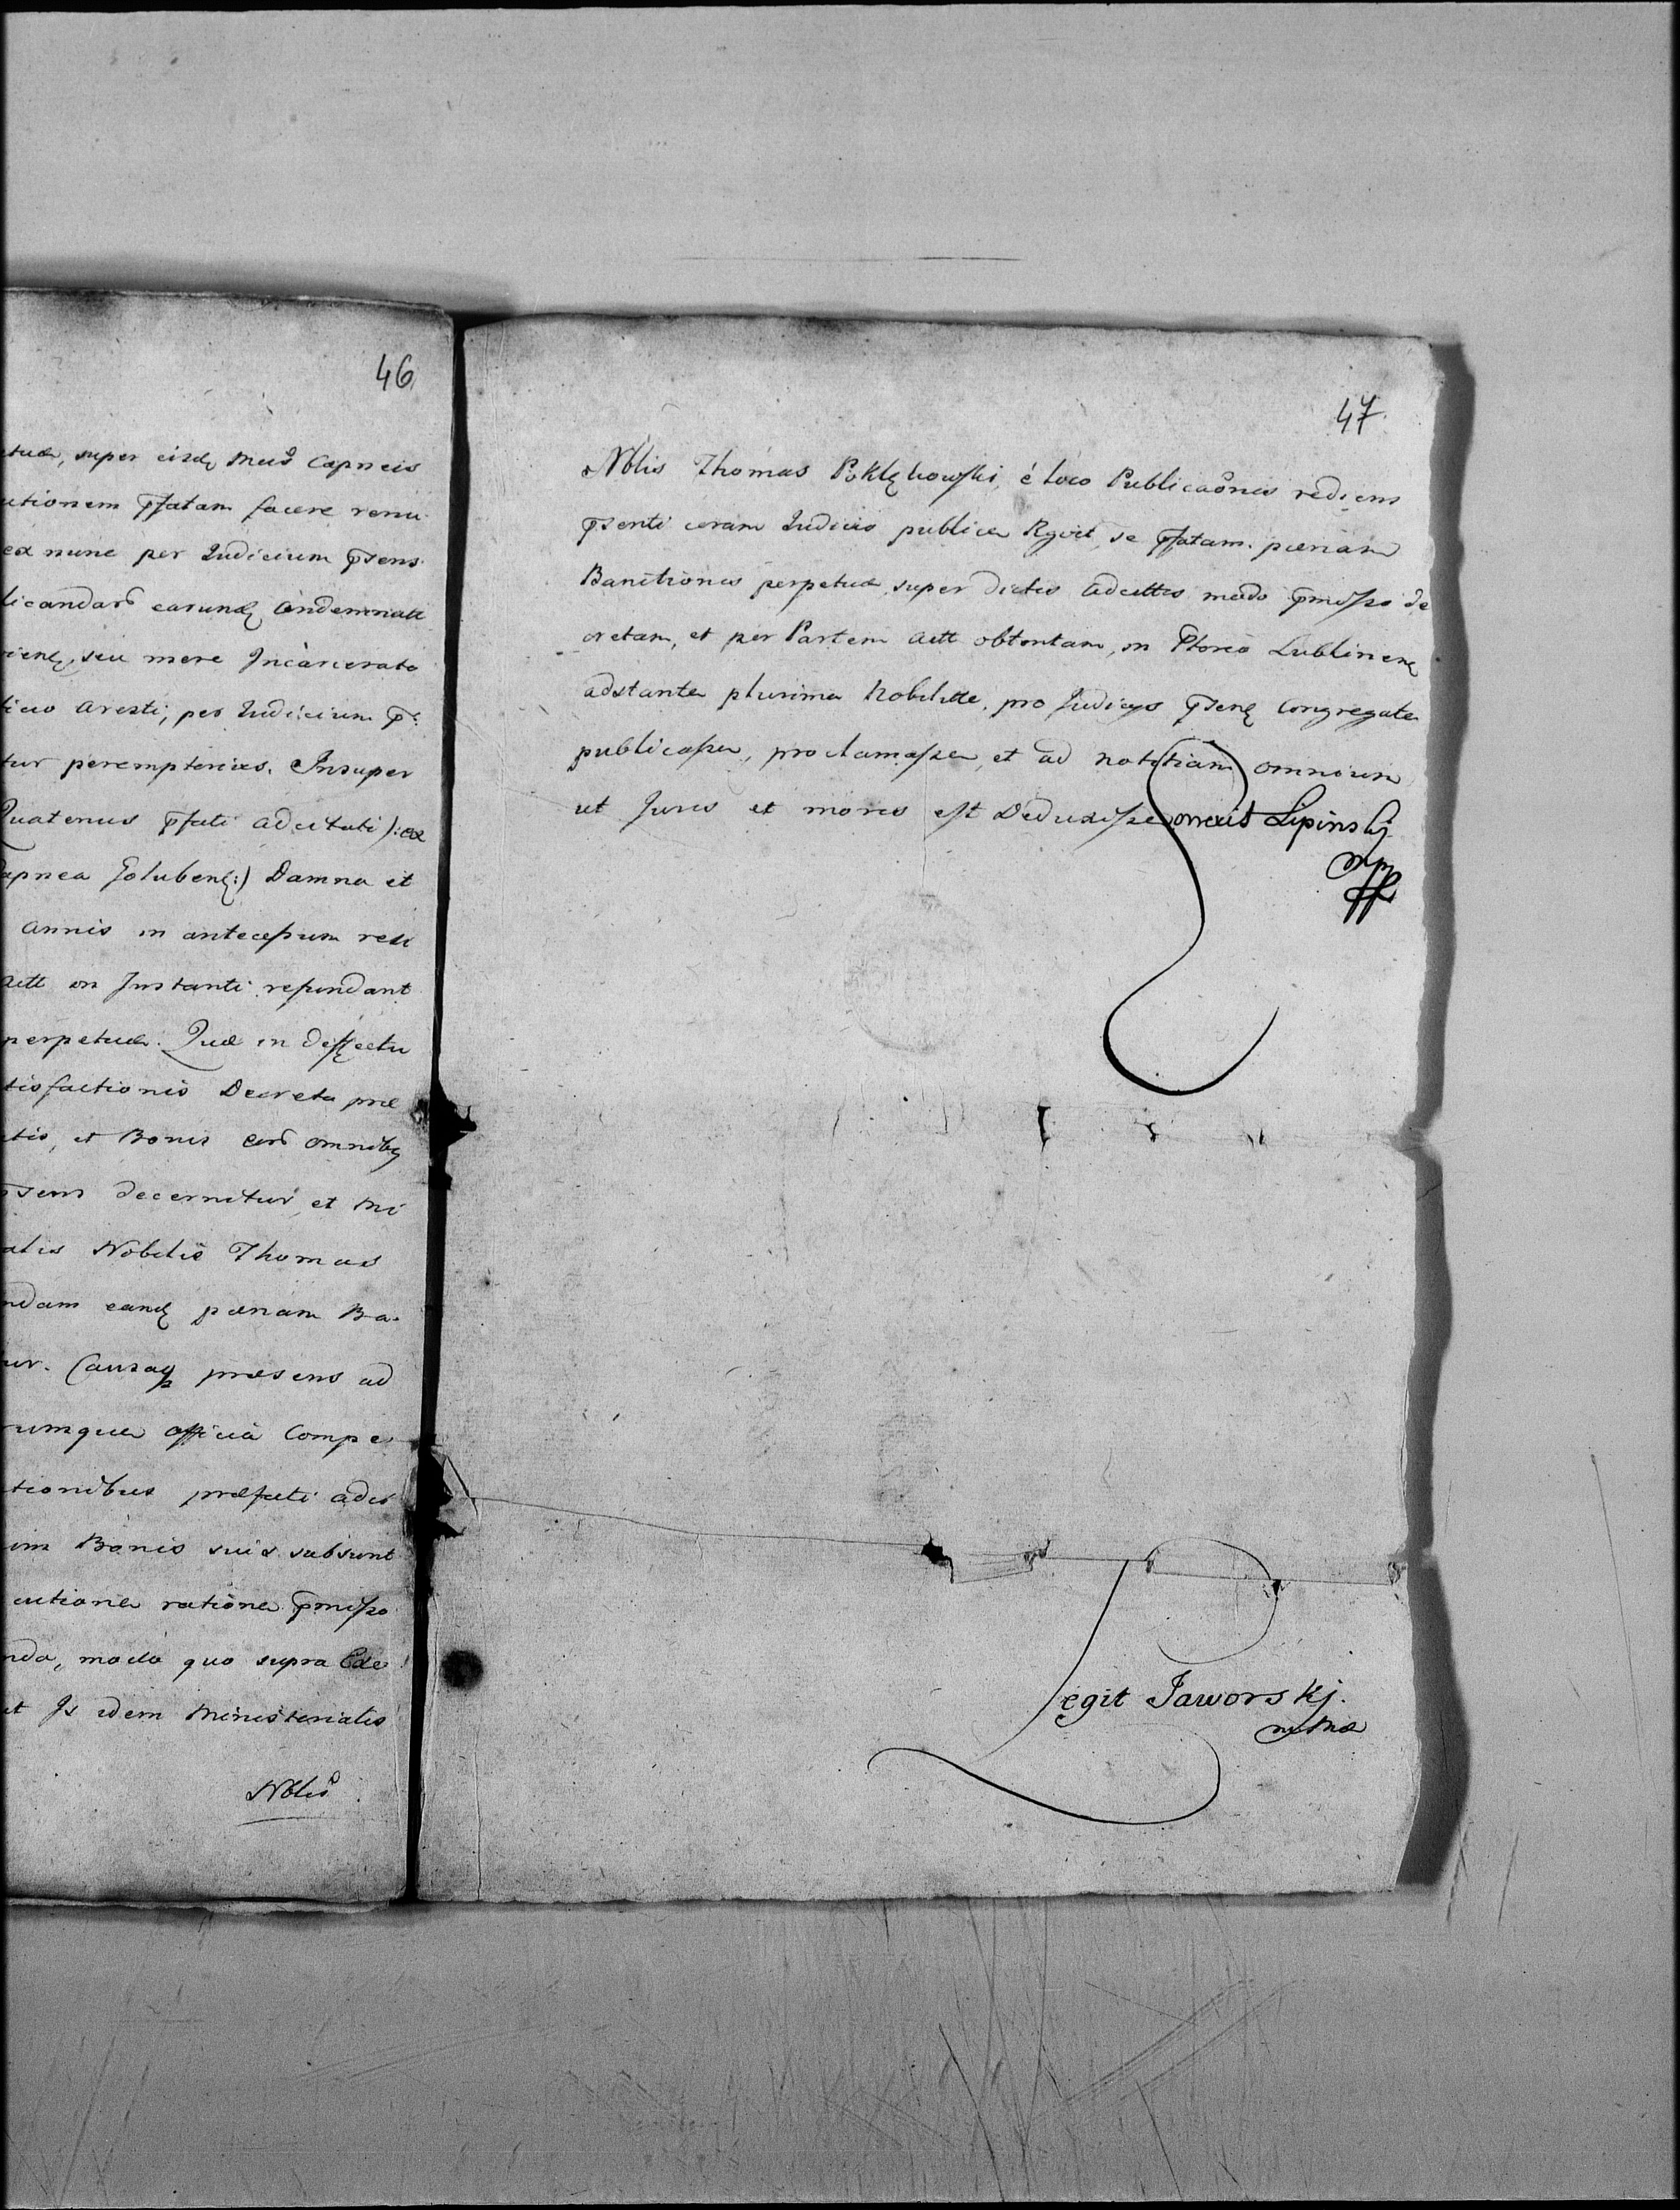 46
tuæ, super eisdę Meis Capneis
utionem p̄fatam facere renu
ex nunc per Judicium p̄sens
licandarō earundę Condemnatt
rienę, seu mere Incarcerato
Aresti, per Judicium p̄
tur peremptorios. Insuper
Quatenus p̄fati Adcitati /: ex
apnea Golubenę :/ Damna et
Annis in antecessum resi
Actt in Instanti rependant
perpetuæ. Quæ in deffectu
tisfactionis Decreto præ
tis, et Bonis eorō omnibq
p̄sens decernitur, et Mi
alis Nobilis Thomas
ndam eandę pœnam Ba-
ur. Causaqȝ præsens ad
rumque Officia Compe
tionibus præfati Adci
im Bonis suis subsunt
cutione ratione p̄misso
nda, modo quo supra Ede
et Is idem Ministerialis
Nblis
47
Nblis Thomas Poklękowski, è loco Publicaōnis rediens
p̄senti coram Judicio publice Rgvit, se p̄fatam pœnam
Banitionis perpetuæ super dictis Adcittis modo p̄misso de
cretam, et per Partem Actt obtentam, in Ptorio Lublinenę
adstante plurima Nobilitte, pro Judicijs p̄senę Congregata
publicasse, proclamasse, et ad notitiam omnium
ut Juris et moris est Deduxisse Correxit Lipinskj
mp
Legit Jaworskj.
mp